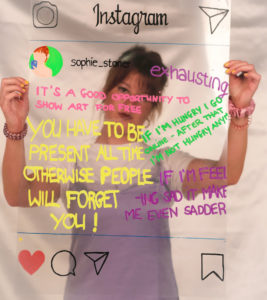 Instagram
sophie_stoner
exhausting
IT'S A GOOD OPPORTUNITY TO
SHOW ART FOR FREE
IF I'M HUNGRY I GO
ONLINE - AFTER THAT
I'M NOT HUNGRY ANYM
YOU HAVE TO BE
PRESENT ALL TIME
OTHERWISE PEOPLE
WILL FORGET
YOU!
IF I'M FEEL
-ING SAD IT MAKE
ME EVEN SADDER